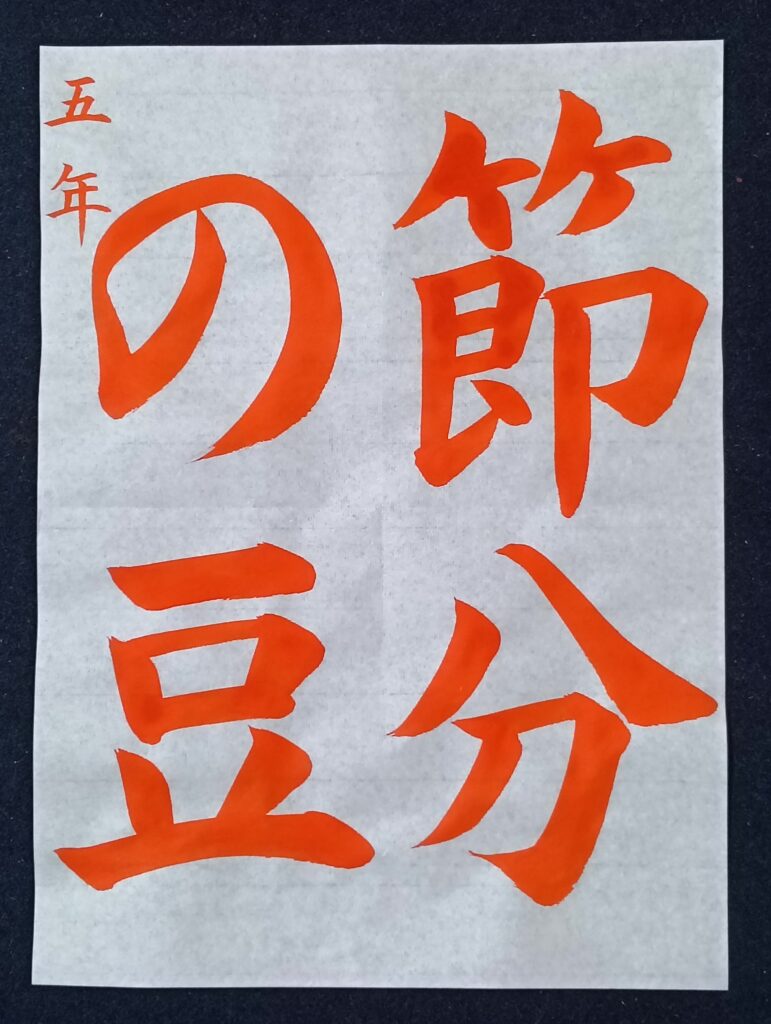 節分
の豆
五年